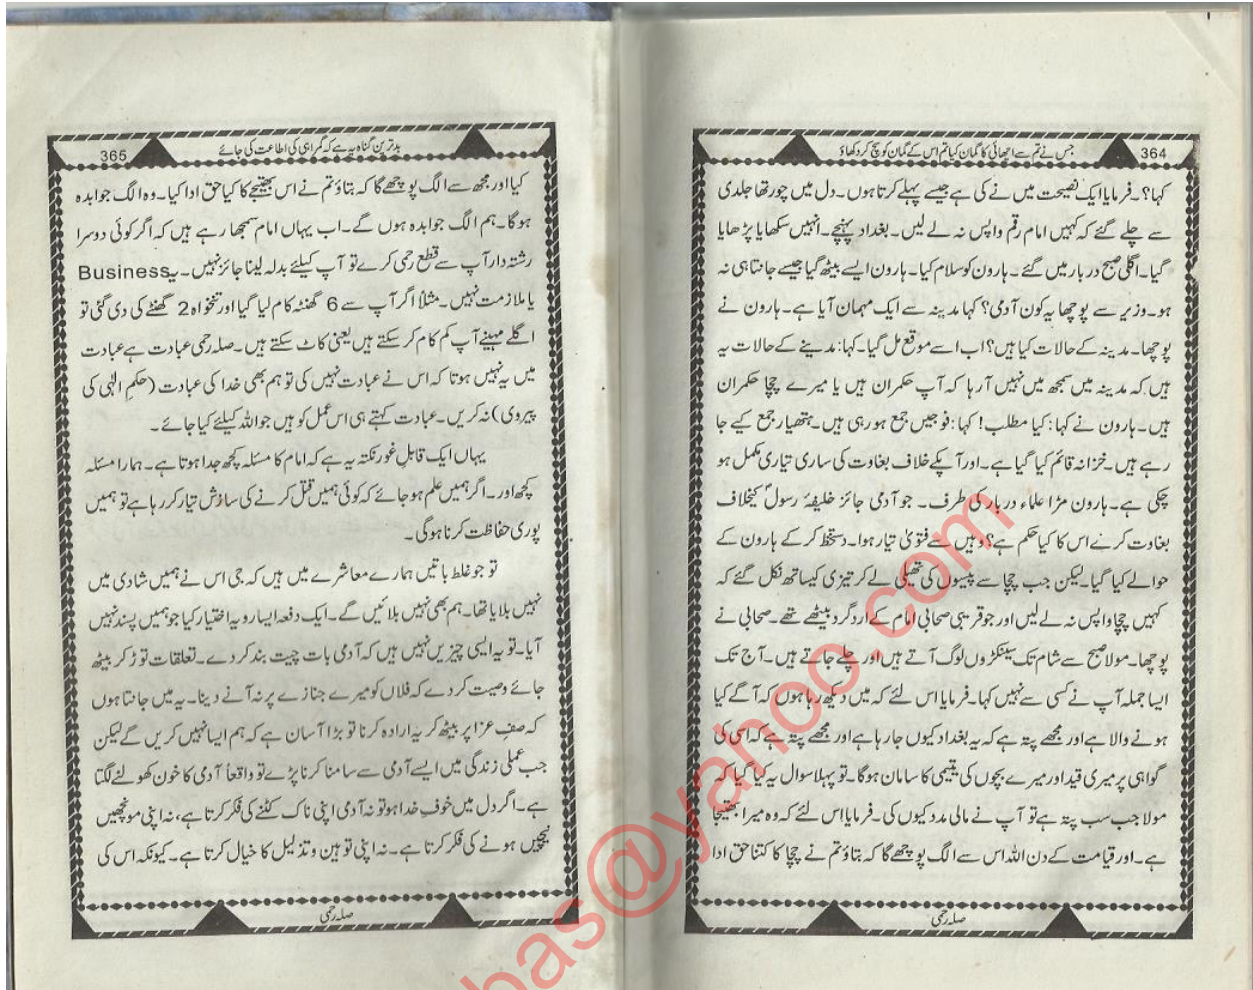 364
جس نے تم سے اچھائی کا گمان کیا تم اس کے گمان کو سچ کر دکھاؤ
کہا؟۔ فرمایا ایک نصیحت میں نے کی ہے جیسے پہلے کرتا ہوں۔ دل میں چور تھا جلدی
سے چلے گئے کہ کہیں امام رقم واپس نہ لے لیں۔ بغداد پہنچے۔ انہیں سکھایا پڑھایا
گیا۔ اگلی صبح دربار میں گئے۔ ہارون کو سلام کیا۔ ہارون ایسے بیٹھ گیا جیسے جانتا ہی نہ
ہو۔ وزیر سے پوچھا یہ کون آدمی؟ کہا مدینہ سے ایک مہمان آیا ہے۔ ہارون نے
پوچھا۔ مدینہ کے حالات کیا ہیں؟ اب اسے موقع مل گیا۔ کہا: مدینے کے حالات یہ
ہیں کہ مدینہ میں سمجھ میں نہیں آرہا کہ آپ حکمران ہیں یا میرے چچا حکمران
ہیں۔ ہارون نے کہا: کیا مطلب! کہا: فوجیں جمع ہو رہی ہیں۔ ہتھیار جمع کیے جا
رہے ہیں۔ خزانہ قائم کیا گیا ہے۔ اور آپکے خلاف بغاوت کی ساری تیاری مکمل ہو
چکی ہے۔ ہارون مڑا علماء دربار کی طرف۔ جو آدمی جائز خلیفۂ رسولؐ کیخلاف
بغاوت کرے اس کا کیا حکم ہے؟ وہیں سے فتویٰ تیار ہوا۔ دستخط کر کے ہارون کے
حوالے کیا گیا۔ لیکن جب چچا سے پیسوں کی تھیلی لے کر تیزی کیساتھ نکل گئے کہ
کہیں چچا واپس نہ لے لیں اور جو قریبی صحابی امام کے ارد گرد بیٹھے تھے۔ صحابی نے
پوچھا۔ مولا صبح سے شام تک سینکڑوں لوگ آتے ہیں اور چلے جاتے ہیں۔ آج تک
ایسا جملہ آپ نے کسی سے نہیں کہا۔ فرمایا اس لئے کہ میں دیکھ رہا ہوں کہ آگے کیا
ہونے والا ہے اور مجھے پتہ ہے کہ یہ بغداد کیوں جا رہا ہے اور مجھے پتہ ہے کہ اسی کی
گواہی پر میری قید اور میرے بچوں کی یتیمی کا سامان ہوگا۔ تو پہلا سوال یہ کیا گیا کہ
مولا جب سب پتہ ہے تو آپ نے مالی مدد کیوں کی۔ فرمایا اس لئے کہ وہ میرا بھتیجا
ہے۔ اور قیامت کے دن اللہ اس سے الگ پوچھے گا کہ بتاؤ تم نے چچا کا کتنا حق ادا
صلہ رحمی
بدترین گناہ یہ ہے کہ گمراہی کی اطاعت کی جائے
365
کیا اور مجھ سے الگ پوچھے گا کہ بتاؤ تم نے اس بھتیجے کا کیا حق ادا کیا۔ وہ الگ جوابدہ
ہوگا۔ ہم الگ جوابدہ ہوں گے۔ اب یہاں امام سمجھا رہے ہیں کہ اگر کوئی دوسرا
رشتہ دار آپ سے قطع رحمی کرے تو آپ کیلئے بدلہ لینا جائز نہیں۔ یہ Business
یا ملازمت نہیں۔ مثلاً اگر آپ سے 6 گھنٹہ کام لیا گیا اور تنخواہ 2 گھنٹے کی دی گئی تو
اگلے مہینے آپ کم کام کر سکتے ہیں یعنی کاٹ سکتے ہیں۔ صلہ رحمی عبادت ہے عبادت
میں یہ نہیں ہوتا کہ اس نے عبادت نہیں کی تو ہم بھی خدا کی عبادت (حکم الٰہی کی
پیروی) نہ کریں۔ عبادت کہتے ہی اس عمل کو ہیں جو اللہ کیلئے کیا جائے۔
یہاں ایک قابلِ غور نکتہ یہ ہے کہ امام کا مسئلہ کچھ جدا ہوتا ہے۔ ہمارا مسئلہ
کچھ اور۔ اگر ہمیں علم ہو جائے کہ کوئی ہمیں قتل کرنے کی سازش تیار کر رہا ہے تو ہمیں
پوری حفاظت کرنا ہوگی۔
تو جو غلط باتیں ہمارے معاشرے میں ہیں کہ جی اس نے ہمیں شادی میں
نہیں بلایا تھا۔ ہم بھی نہیں بلائیں گے۔ ایک دفعہ ایسا رویہ اختیار کیا جو ہمیں پسند نہیں
آیا۔ تو یہ ایسی چیزیں نہیں ہیں کہ آدمی بات چیت بند کر دے۔ تعلقات توڑ کر بیٹھ
جائے وصیت کر دے کہ فلاں کو میرے جنازے پر نہ آنے دینا۔ یہ میں جانتا ہوں
کہ صفِ عزا پر بیٹھ کر یہ ارادہ کرنا تو بڑا آسان ہے کہ ہم ایسا نہیں کریں گے لیکن
جب عملی زندگی میں ایسے آدمی سے سامنا کرنا پڑے تو واقعاً آدمی کا خون کھولنے لگتا
ہے۔ اگر دل میں خوفِ خدا ہو تو نہ آدمی اپنی ناک کٹنے کی فکر کرتا ہے، نہ اپنی مونچھیں
نیچیں ہونے کی فکر کرتا ہے۔ نہ اپنی توہین و تذلیل کا خیال کرتا ہے۔ کیونکہ اس کی
صلہ رحمی
bas@yahoo.com